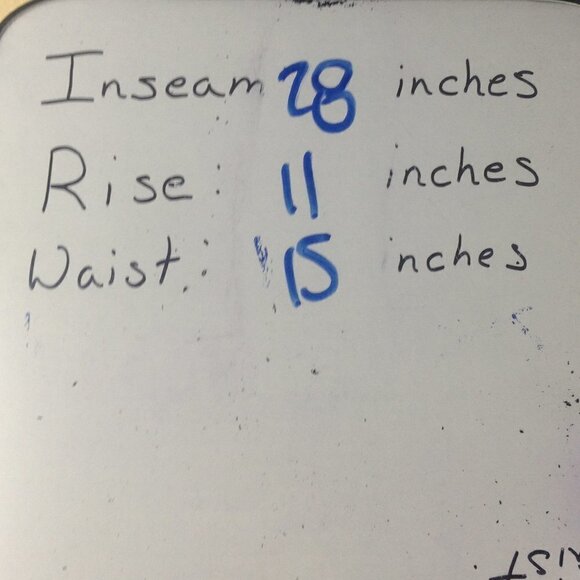 Inseam 28 inches
Rise: 11 inches
Waist: 15 nches